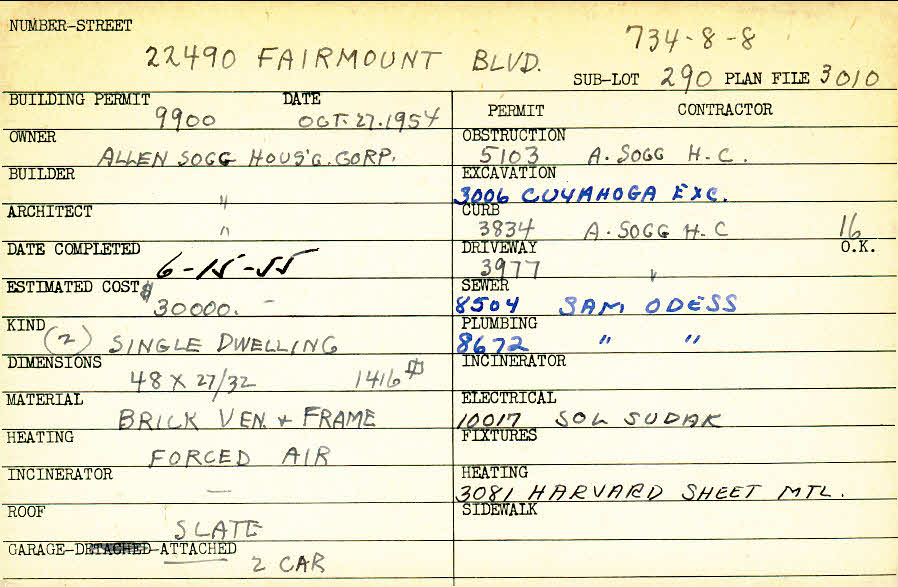 NUMBER-STREET
734-8-8
22490 FAIRMOUNT BLVD.
SUB-LOT 290 PLAN FILE 3010
BUILDING PERMIT DATE
9900 OCT. 27. 1954
OWNER
ALLEN SOGG HOUS'G. CORP.
BUILDER
"
ARCHITECT
"
DATE COMPLETED
6-15-55
ESTIMATED COST
$30000. -
KIND
(2) SINGLE DWELLING
DIMENSIONS
48 X 27/32 1416 ⌗
MATERIAL
BRICK VEN. + FRAME
HEATING
FORCED AIR
INCINERATOR
—
ROOF
SLATE
GARAGE-DETACHED-ATTACHED
2 CAR
PERMIT CONTRACTOR
OBSTRUCTION
5103 A. SOGG H.C.
EXCAVATION
3006 CUYAHOGA EXC.
CURB
3834 A. SOGG H.C 16
DRIVEWAY O.K.
3977 "
SEWER
8504 SAM ODESS
PLUMBING
8672 " "
INCINERATOR
ELECTRICAL
10017 SOL SUDAK
FIXTURES
HEATING
3081 HARVARD SHEET MTL.
SIDEWALK